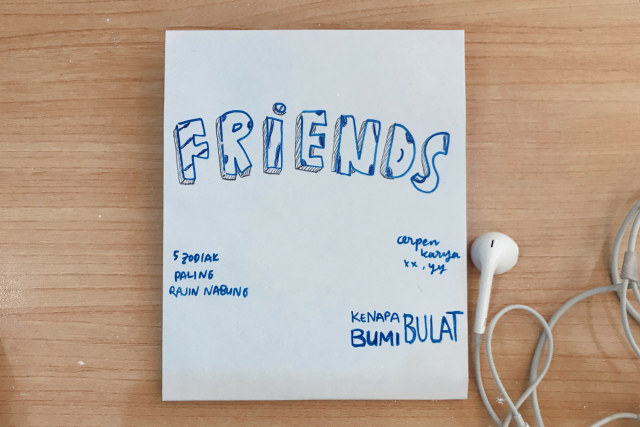 FRiENDS
5 ZODIAK
PALING
RAJIN NABUNG
cerpen
karya
xx, yy
KENAPA
BUMI BULAT